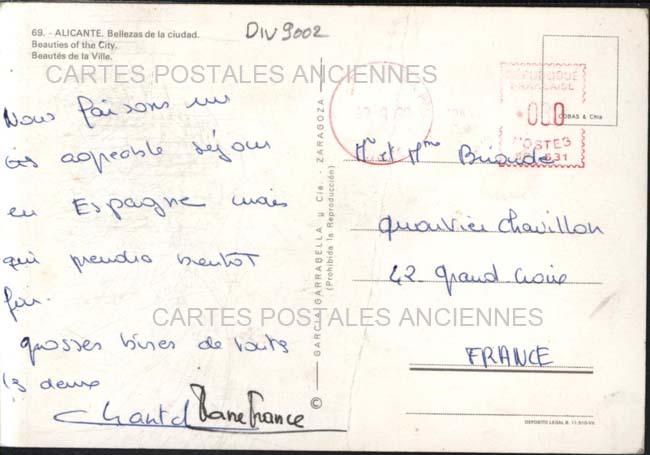 69. - ALICANTE. Bellezas de la ciudad.
Beauties of the City.
Beautés de la Ville.
DIV9002
CARTES POSTALES ANCIENNES
Nous faisons un
très agréable séjour
en Espagne mais
qui prendra bientôt
fin.
grosses bises de toutes
les deux
Chantal Marie France
GARCIA GARRABELLA y Cía. - ZARAGOZA
(Prohibida la Reproducción)
©
RÉPUBLIQUE
FRANÇAISE
POSTES
COBAS & Cnia
Mr et Mme
quartier Chavillon
42 Grand Croix
CARTES POSTALES ANCIENNES
FRANCE
DEPOSITO LEGAL B. 11.510-VII